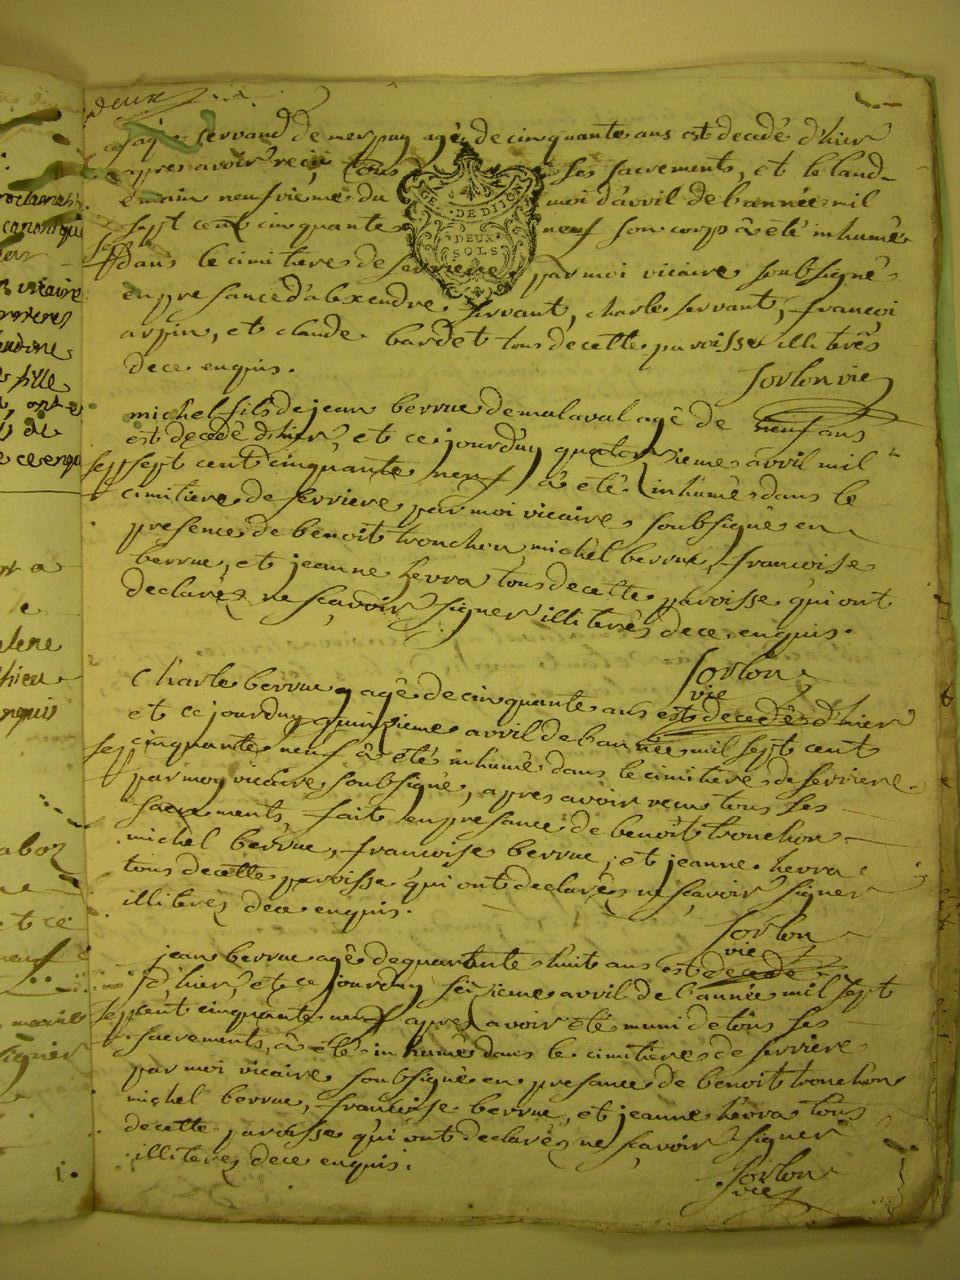 deux
servand de merpuy agé de cinquante ans est decedé d'hier
apres avoir reçu tous ses sacrements, et le land-
emain neufvieme du moi d'avril de l'année mil
sept cent cinquante neuf son corp à été inhumé
dans le cimitiere de serriere par moi vicaire soubsigné
en presance d'alexendre servant, charle servant, francoi
arpin, et claude bardet tous de cette paroisse illiterés
de ce enquis.
GE. DE DIJON
DEUX
SOLS
Sorlon vic
michel fils de jean berrue de malaval agé de neuf ans
est decedé d'hier, et ce jourduy quatorsieme avril mil
sept cent cinquante neuf à été inhumé dans le
cimitiere de serriere par moi vicaire soubsigné en
presence de benoit tronchon, michel berrue, francoise
berrue, et jeanne herra tous de cette paroisse qui ont
declarés ne sçavoir signer illiterés de ce enquis.
Sorlon
vic
Charle berrue agé de cinquante ans est decedé d'hier
et ce jourduy quinzieme avril de l'année mil sept cent
cinquante neuf à été inhumé dans le cimitiere de serriere
par moy vicaire soubsigné, apres avoir recu tous ses
sacrements, fait en presance de benoit tronchon
michel berrue, francoise berrue, et jeanne herra
tous de cette paroisse qui ont declarés ne sçavoir signer
illiterez de ce enquis.
Sorlon
vic
jean berrue agé de quarante huit ans est decedé
d'hier, et ce jourduy seizieme avril de l'année mil sept
cent cinquante neuf apres avoir été muni de tous ses
sacrements, à été inhumé dans le cimitiere de serriere
par moi vicaire soubsigné en presance de benoit tronchon
michel berrue, francoise berrue, et jeanne herra tous
de cette paroisse qui ont declarés ne sçavoir signer
illiterez de ce enquis.
Sorlon
vic